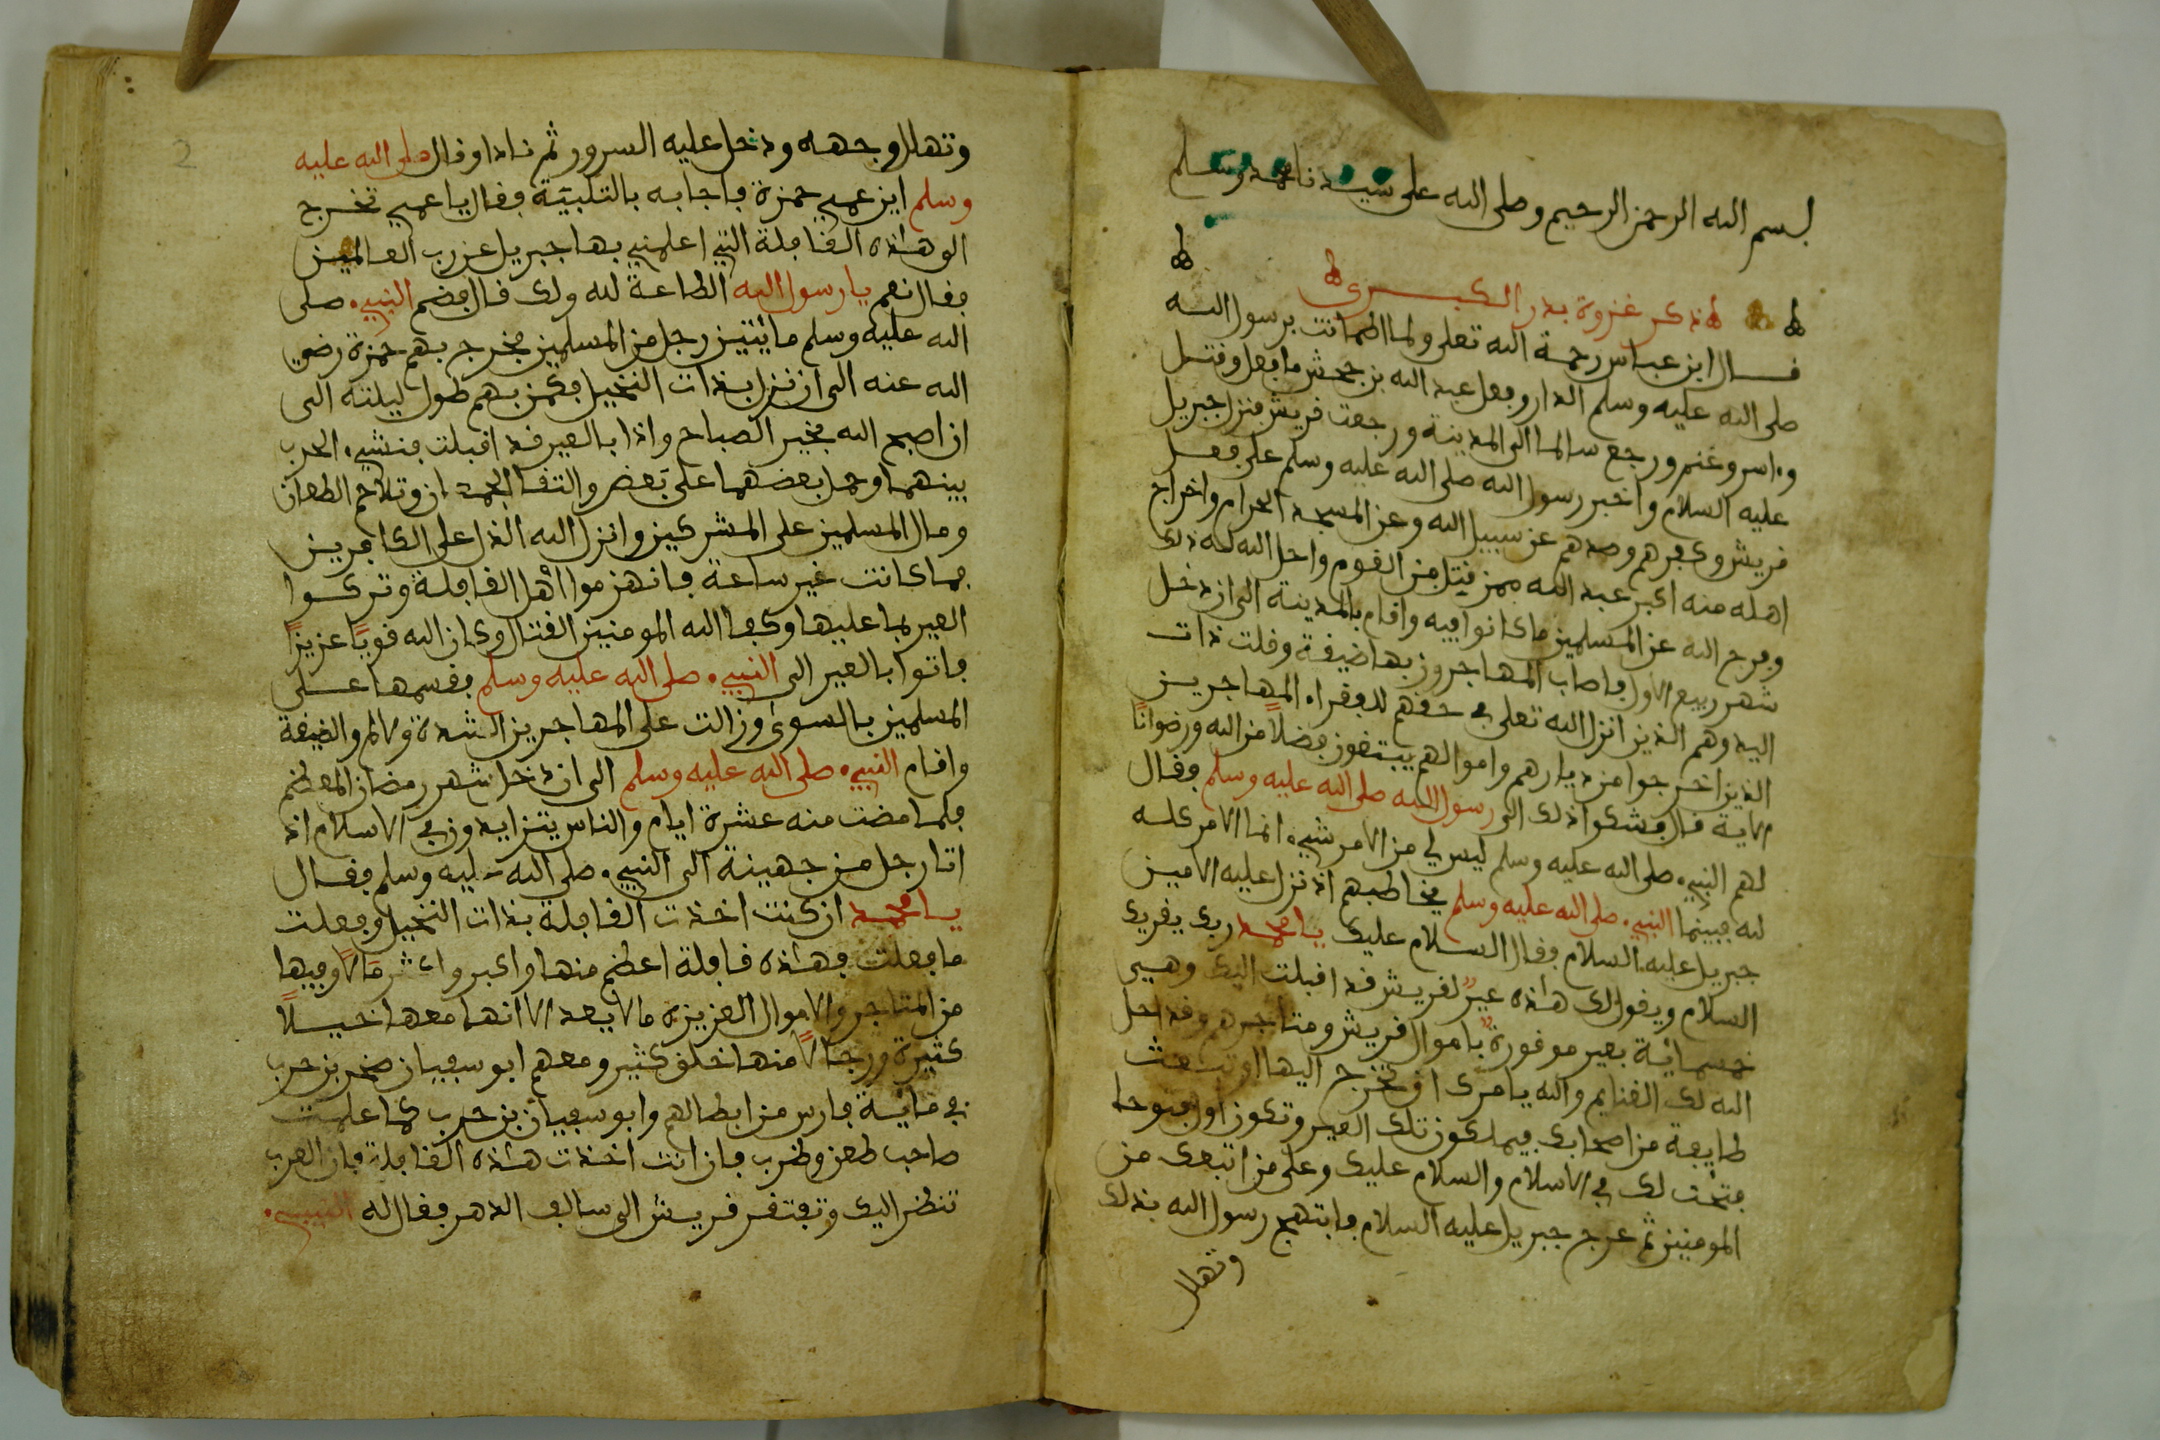 بسم الله الرحمن الرحيم وصلى الله على سيدنا محمد وسلم
ذكر غزوة بدر الكبرى
قال ابن عباس رحمة الله تعلى ولما اطمانت برسول الله
صلى الله عليه وسلم الدار وفعل عبد الله بن جحش ما فعل وقتل
واسر وغنم ورجع سالما الى المدينة ورجعت قريش فنزل جبريل
عليه السلام واخبر رسول الله صلى الله عليه وسلم على فعل
قريش وكفرهم وصدهم عن سبيل الله وعن المسجد الحرام واخراج
اهله منه اكبر عند الله ممن قتل من القوم واحل الله له ذلك
وفرح الله عن المسلمين ما كانوا فيه واقام بالمدينة الى ان دخل
شهر ربيع الاول فاصاب المهاجرون بها ضيقة وقلت ذات
اليد وهم الذين انزل الله تعلى في حقهم للفقراء المهاجرين
الذين اخرجوا من ديارهم واموالهم يبتغون فضلا من الله ورضوانا
الاية قال فشكوا ذلك الى رسول الله صلى الله عليه وسلم فقال
لهم النبيء صلى الله عليه وسلم ليس لي من الامر شيء انما الامر كله
لله فبينما النبيء صلى الله عليه وسلم يخاطبهم اذ نزل عليه الامين
جبريل عليه السلام فقال السلام عليك يا محمد ربك يقريك
السلام ويقول لك هذه عير لقريش قد اقبلت اليك وهي
خمسمائة بعير موفورة باموال قريش ومتاجرهم وقد احل
الله لك الغنايم والله يامرك ان تخرج اليها او تبعث
طايفة من اصحابك فيملكون تلك العير وتكون اول فتوحا
فتحت لك في الاسلام والسلام عليك وعلى من اتبعك من
المومنين ثم عرج جبريل عليه السلام فابتهج رسول الله بذلك
وتهلل
2
وتهلل وجهه ودخل عليه السرور ثم نادا وقال صلى الله عليه
وسلم اين عمي حمزة فاجابه بالتلبية فقال يا عمي تخرج
الى هذه القافلة التي اعلمني بها جبريل عن رب العالمين
فقال نعم يا رسول الله الطاعة لله ولك قال فضم النبيء صلى
الله عليه وسلم مايتين رجل من المسلمين فخرج بهم حمزة رضي
الله عنه الى ان نزل بذات النخيل فكمن بهم طول ليلته الى
ان اصبح الله بخير الصباح واذا بالعير قد اقبلت فنشيء الحرب
بينهما وحمل بعضهما على بعض والتقا الجمعان وتلاحم الطعان
ومال المسلمين على المشركين وانزل الله الذل على الكافرين
فما كانت غير ساعة فانهزموا اهل القافلة وتركوا
العير بما عليها وكفا الله المومنين القتال وكان الله قويا عزيزا
فاتوا بالعير الى النبيء صلى الله عليه وسلم فقسمها على
المسلمين بالسوى وزالت على المهاجرين الشدة والالم والضيقة
واقام النبيء صلى الله عليه وسلم الى ان دخل شهر رمضان المعظم
فلما مضت منه عشرة ايام والناس يتزايدون في الاسلام اذ
اتا رجل من جهينة الى النبيء صلى الله عليه وسلم فقال
يا محمد ان كنت اخذت القافلة بذات النخيل وفعلت
ما فعلت فهذه قافلة اعظم منها واكبر واكثر مالا وفيها
من المتاجر والاموال العزيزة ما لا يعد الا انها معها خيلا
كثيرة ورجالا منها خلق كثير ومعهم ابو سفيان صخر بن حرب
في مائة فارس من ابطالهم وابو سفيان بن حرب كما علمت
صاحب طعن وضرب فان انت اخذت هذه القافلة فان العرب
تنظر اليك وتفتقر قريش الى سالف الدهر فقال له النبيء